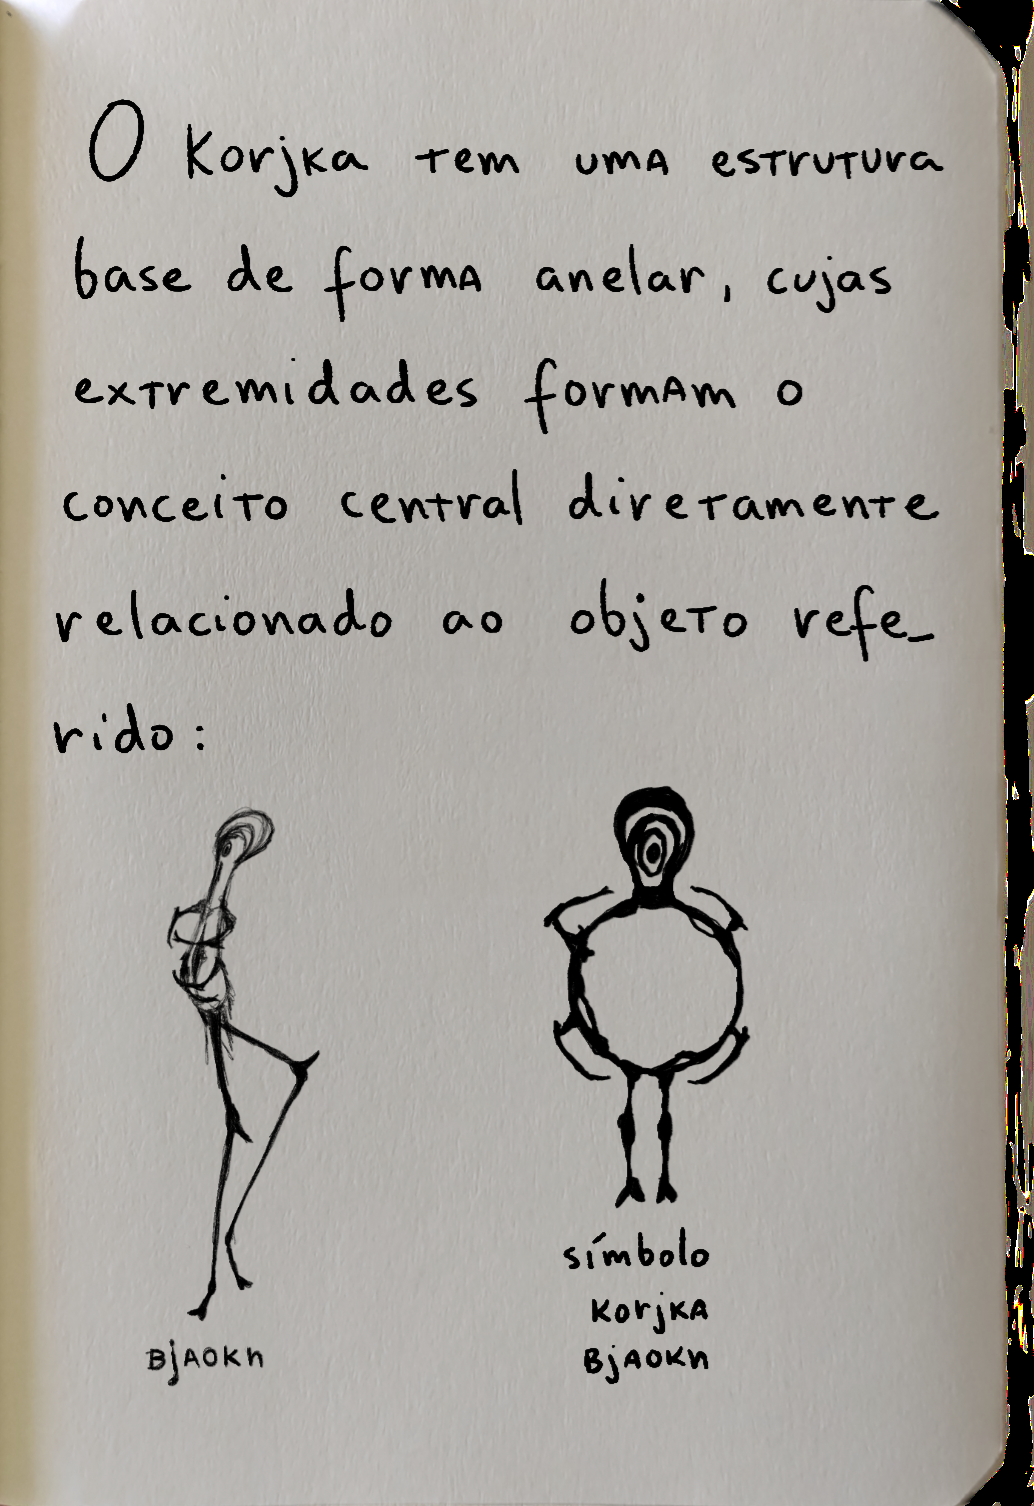 O Korjka tem uma estrutura
base de forma anelar, cujas
extremidades formam o
conceito central diretamente
relacionado ao objeto refe_
rido:
BjAOKn
símbolo
KorjKA
BjAOKn